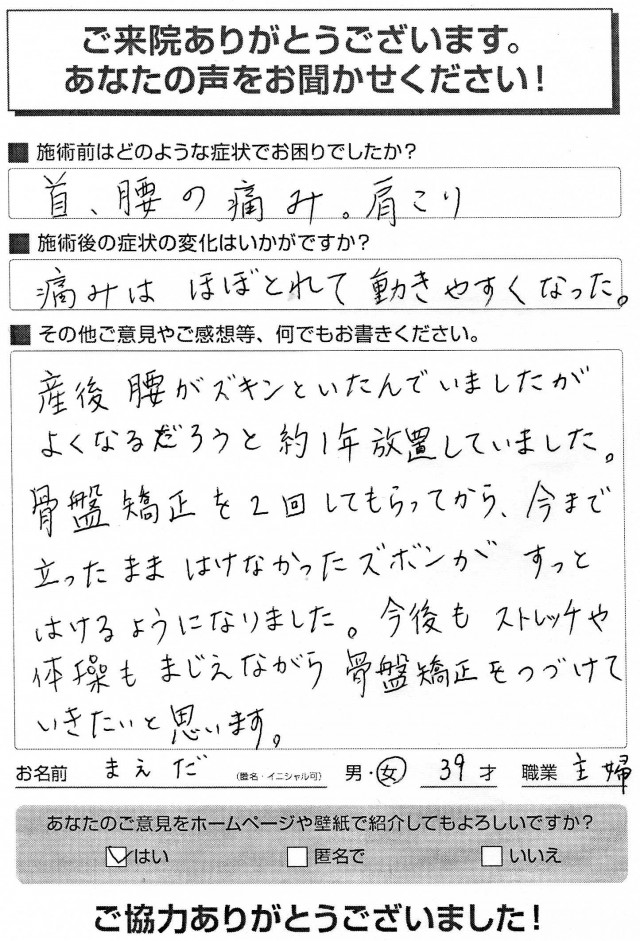 ご来院ありがとうございます。
あなたの声をお聞かせください！
■ 施術前はどのような症状でお困りでしたか？
首、腰の痛み。肩こり
■ 施術後の症状の変化はいかがですか？
痛みは ほぼとれて 動きやすくなった。
■ その他ご意見やご感想等、何でもお書きください。
産後 腰がズキンといたんでいましたが
よくなるだろうと 約1年放置していました。
骨盤矯正を2回してもらってから、今まで
立ったまま はけなかったズボンが すっと
はけるようになりました。今後も ストレッチや
体操も まじえながら 骨盤矯正をつづけて
いきたいと思います。
お名前 まえだ （匿名・イニシャル可） 男・女 39才 職業 主婦
あなたのご意見をホームページや壁紙で紹介してもよろしいですか？
☑はい □匿名で □いいえ
ご協力ありがとうございました！